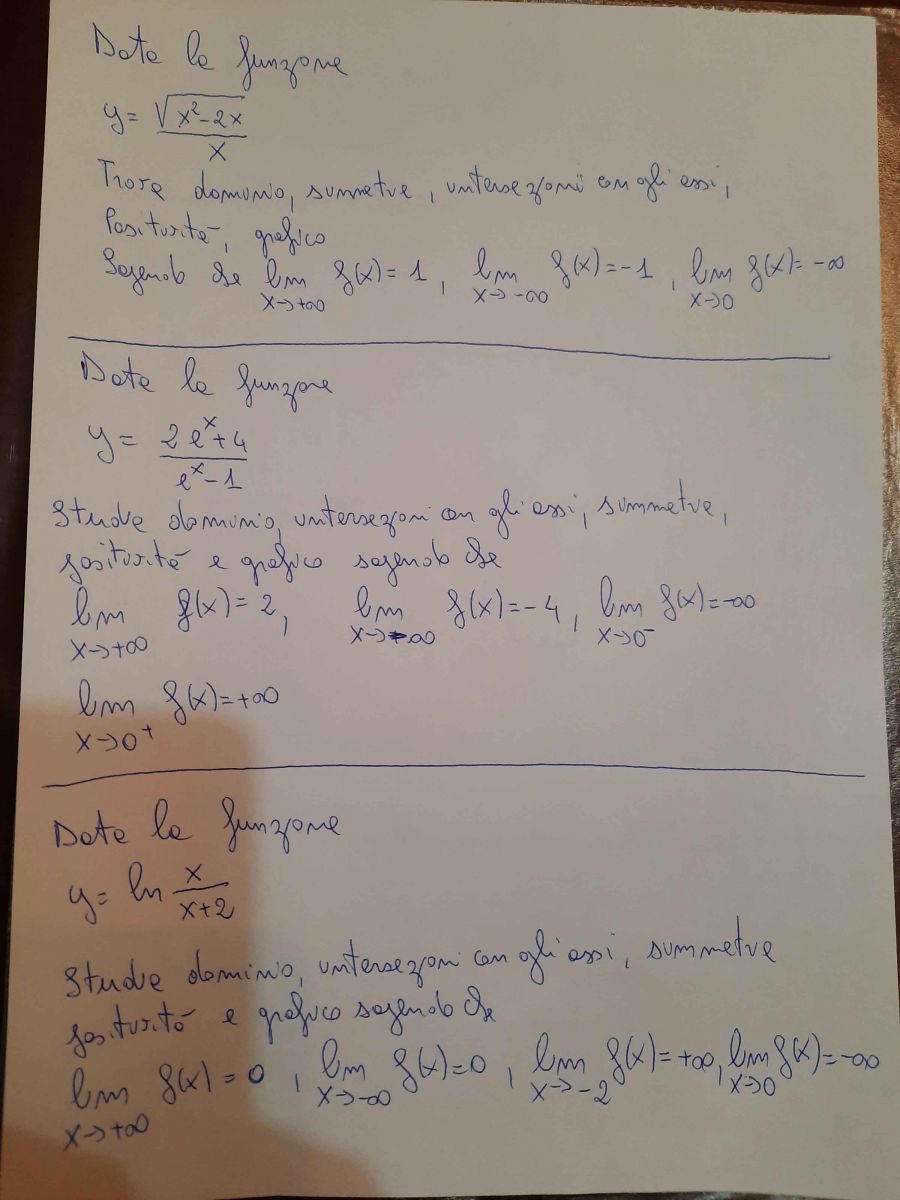 Data la funzione
y = √(x²-2x) / x
Trova dominio, simmetrie, intersezioni con gli assi,
Positività, grafico
Sapendo che lim x→+∞ f(x) = 1, lim x→-∞ f(x) = -1, lim x→0 f(x) = -∞
Data la funzione
y = (2e^x+4) / (e^x-1)
Studia dominio, intersezioni con gli assi, simmetrie,
positività e grafico sapendo che
lim x→+∞ f(x) = 2, lim x→-∞ f(x) = -4, lim x→0⁻ f(x) = -∞
lim x→0⁺ f(x) = +∞
Data la funzione
y = ln x/(x+2)
Studia dominio, intersezioni con gli assi, simmetrie
positività e grafico sapendo che
lim x→+∞ f(x) = 0, lim x→-∞ f(x) = 0, lim x→-2 f(x) = +∞, lim x→0 f(x) = -∞